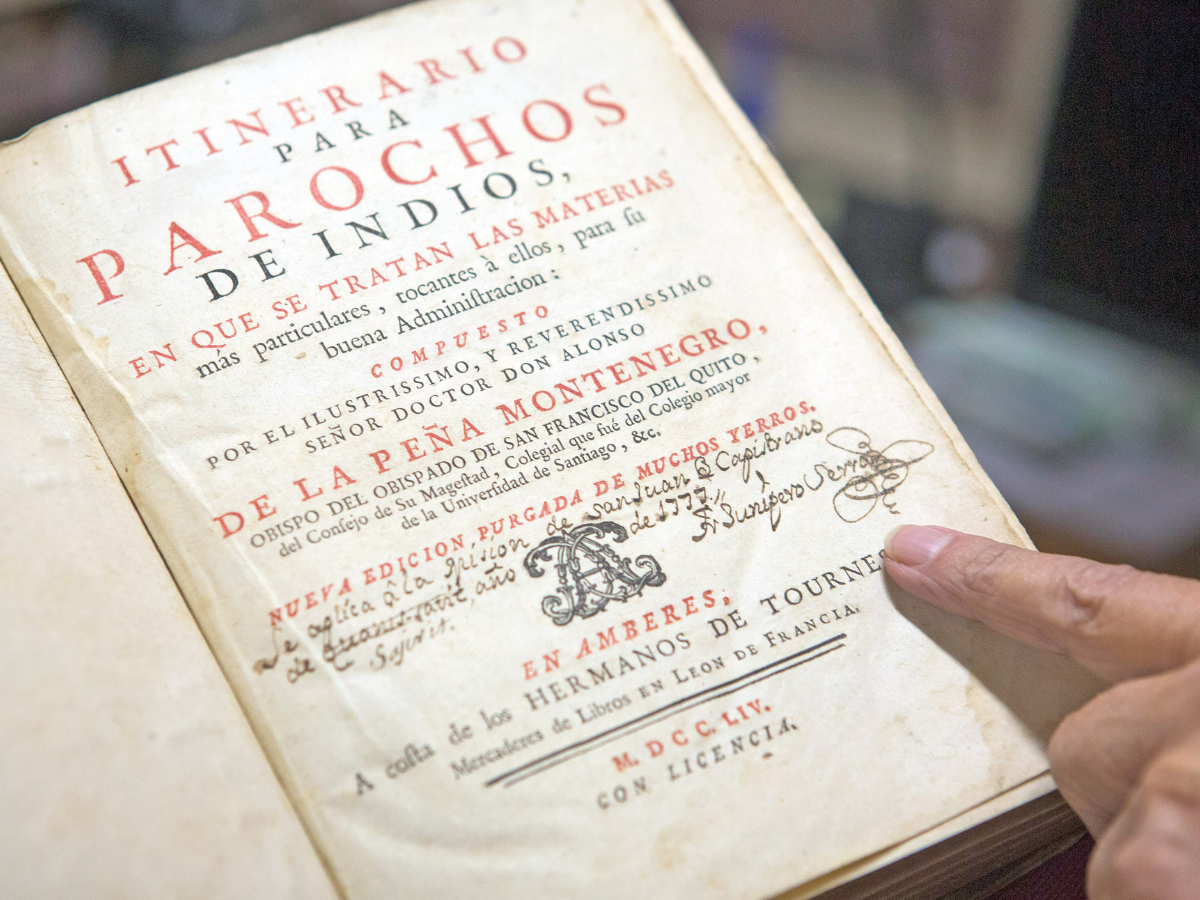 ITINERARIO
PARA
PAROCHOS
DE INDIOS,
EN QUE SE TRATAN LAS MATERIAS
más particulares, tocantes à ellos, para ſu
buena Adminiſtracion:
COMPUESTO
POR EL ILUSTRISSIMO, Y REVERENDISSIMO
SEÑOR DOCTOR DON ALONSO
DE LA PEÑA MONTENEGRO,
OBISPO DEL OBISPADO DE SAN FRANCISCO DEL QUITO,
del Conſejo de Su Mageſtad, Colegial que fué del Colegio mayor
de la Univerſidad de Santiago, &c.
NUEVA EDICION PURGADA DE MUCHOS YERROS.
Se aplica à la Mision de San Juan Capistrano
de año de 1777
Fr Junipero Serra
EN AMBERES;
A coſta de los HERMANOS DE TOURNES
Mercaderes de Libros EN LEON DE FRANCIA.
M. DCC. LIV.
CON LICENCIA.